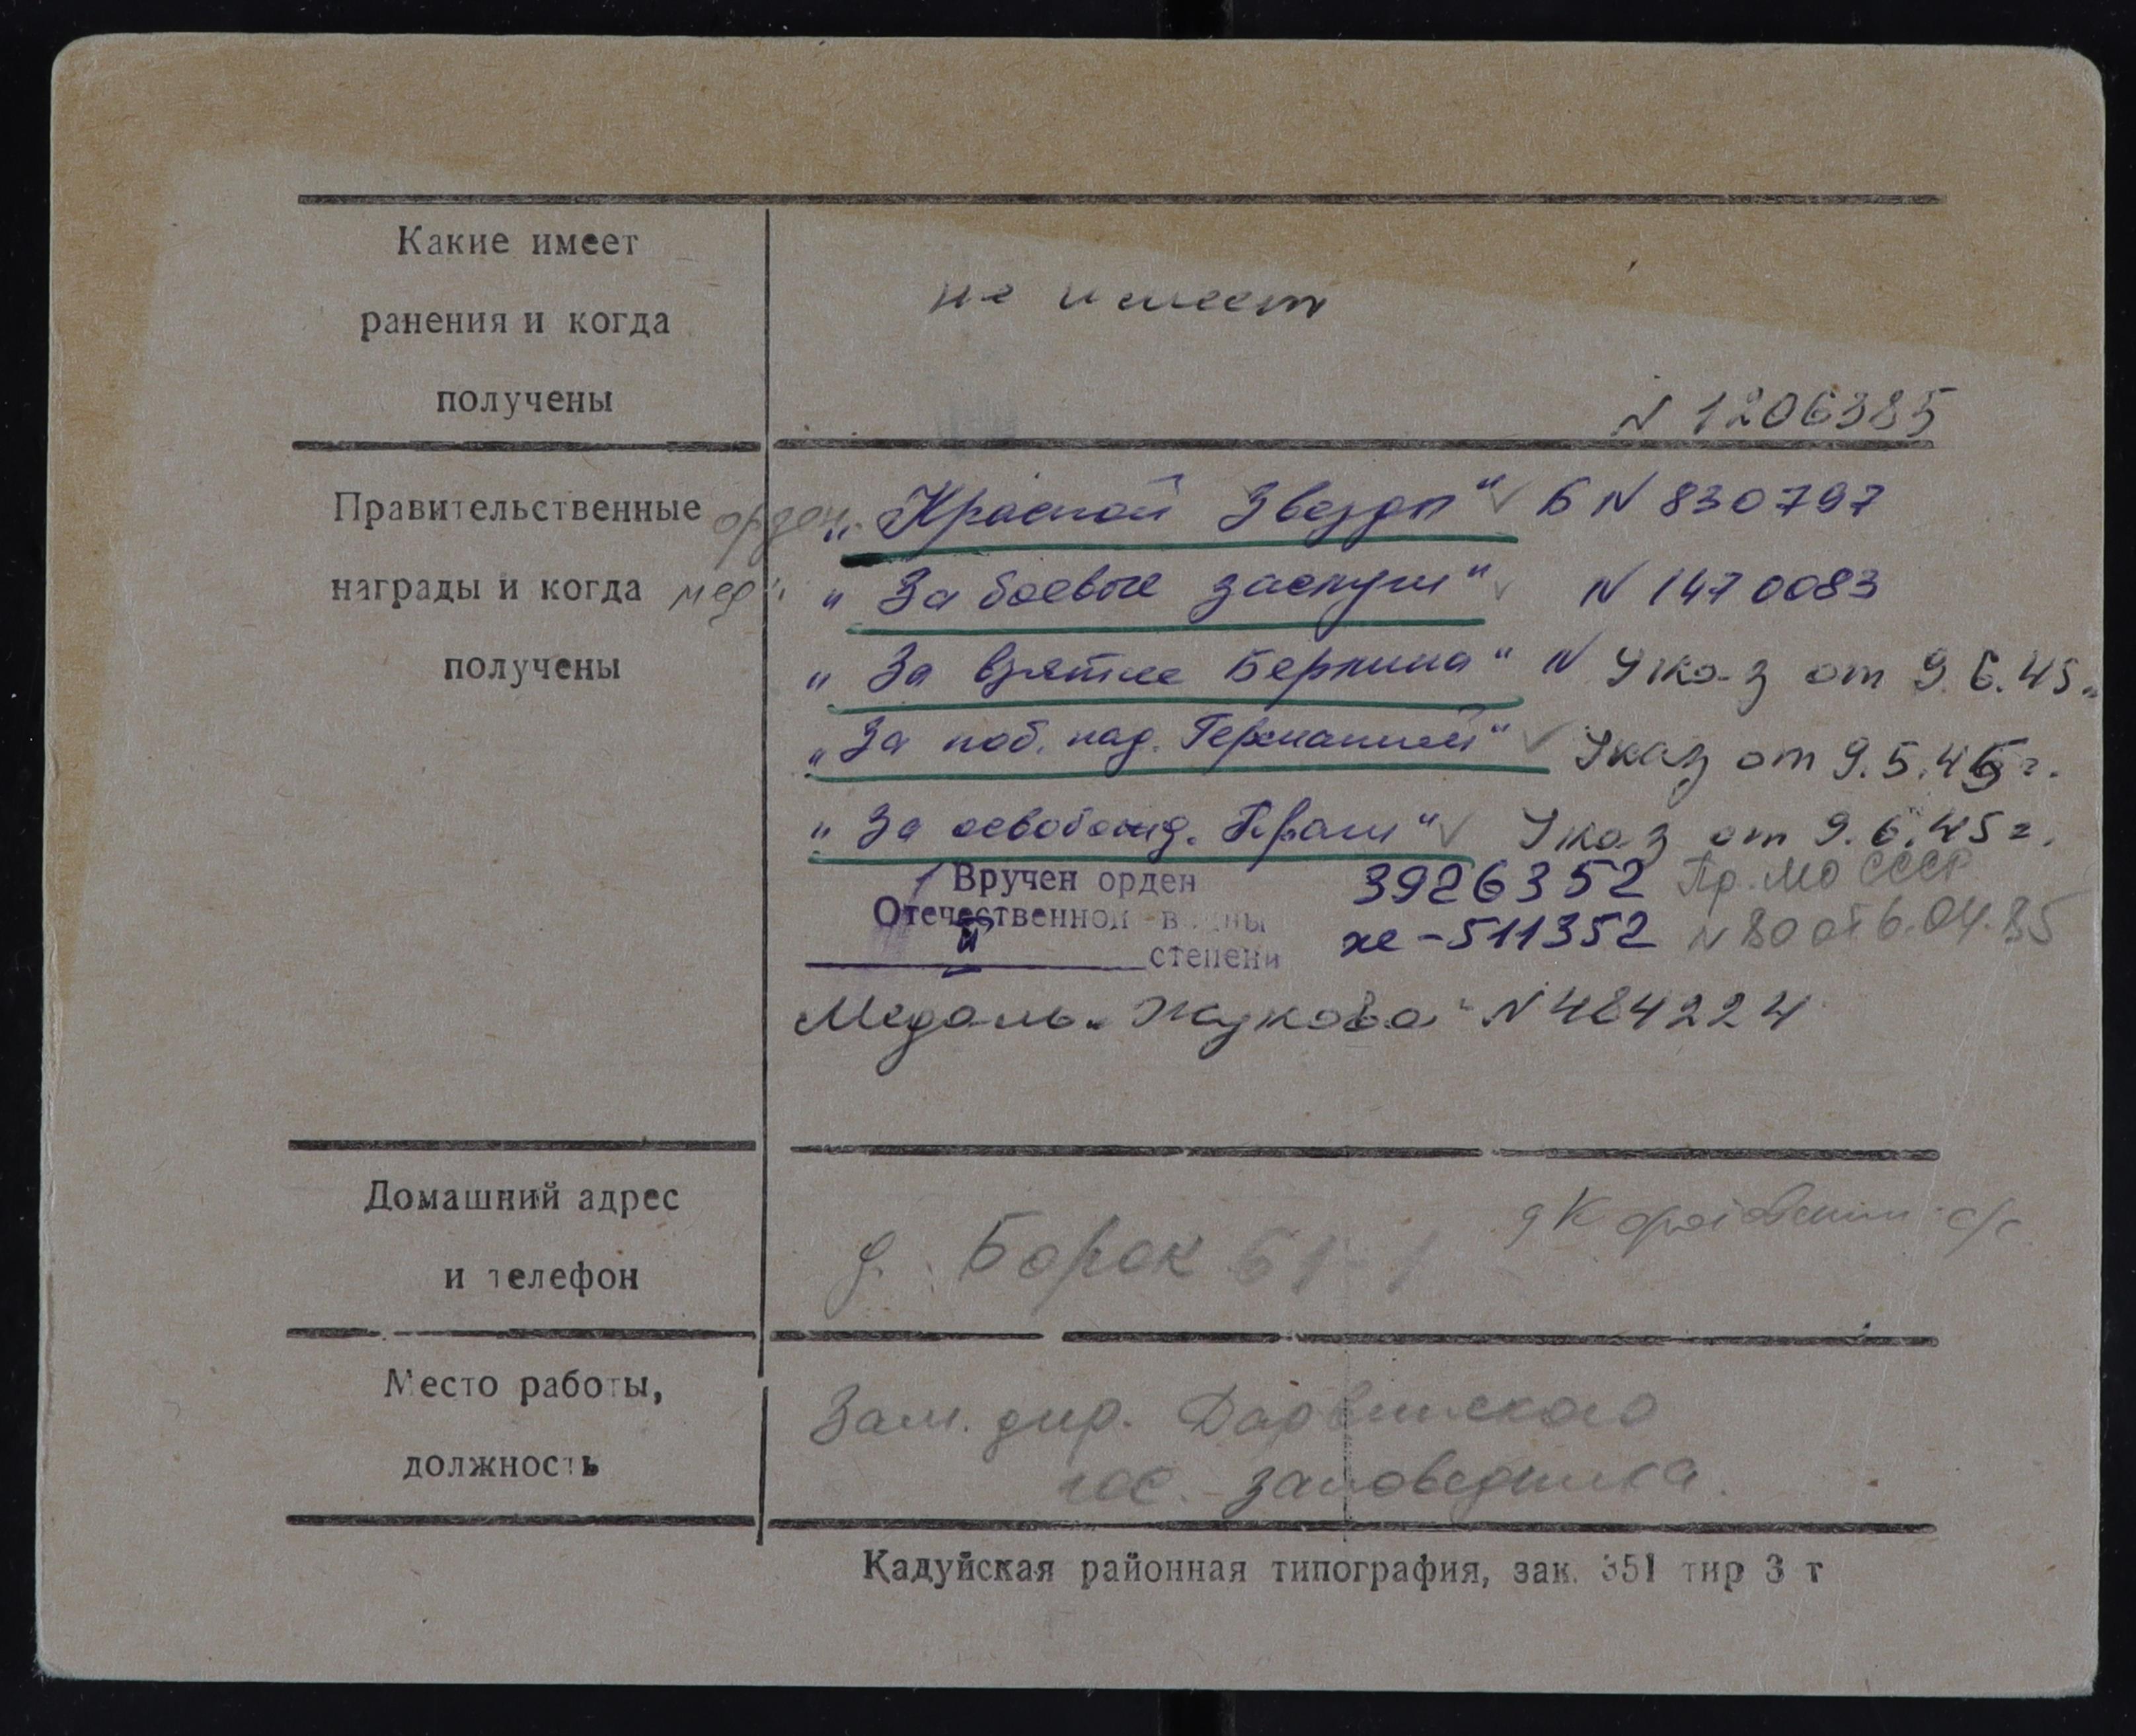 Какие имеет
ранения и когда
получены
не имеет
N 1206385
Правительственные
награды и когда
получены
орден „Красной Звезды" Б N 830797
мед. „За боевые заслуги" N 1470083
„За взятие Берлина" N Указ от 9.6.45г
„За поб. над. Германией" Указ от 9.5.45г.
„За освобожд. Праги" Указ от 9.6.45г.
Вручен орден 3926352 Пр. МО СССР
Отечественной войны хе-511352 N 80 от 6.04.85
II степени
Медаль „Жукова" N 484224
Домашний адрес
и телефон
д. Борок
Место работы,
должность
Зам. дир. Дарвинского
гос. заповедника.
Кадуйская районная типография, зак. 351 тир 3 т